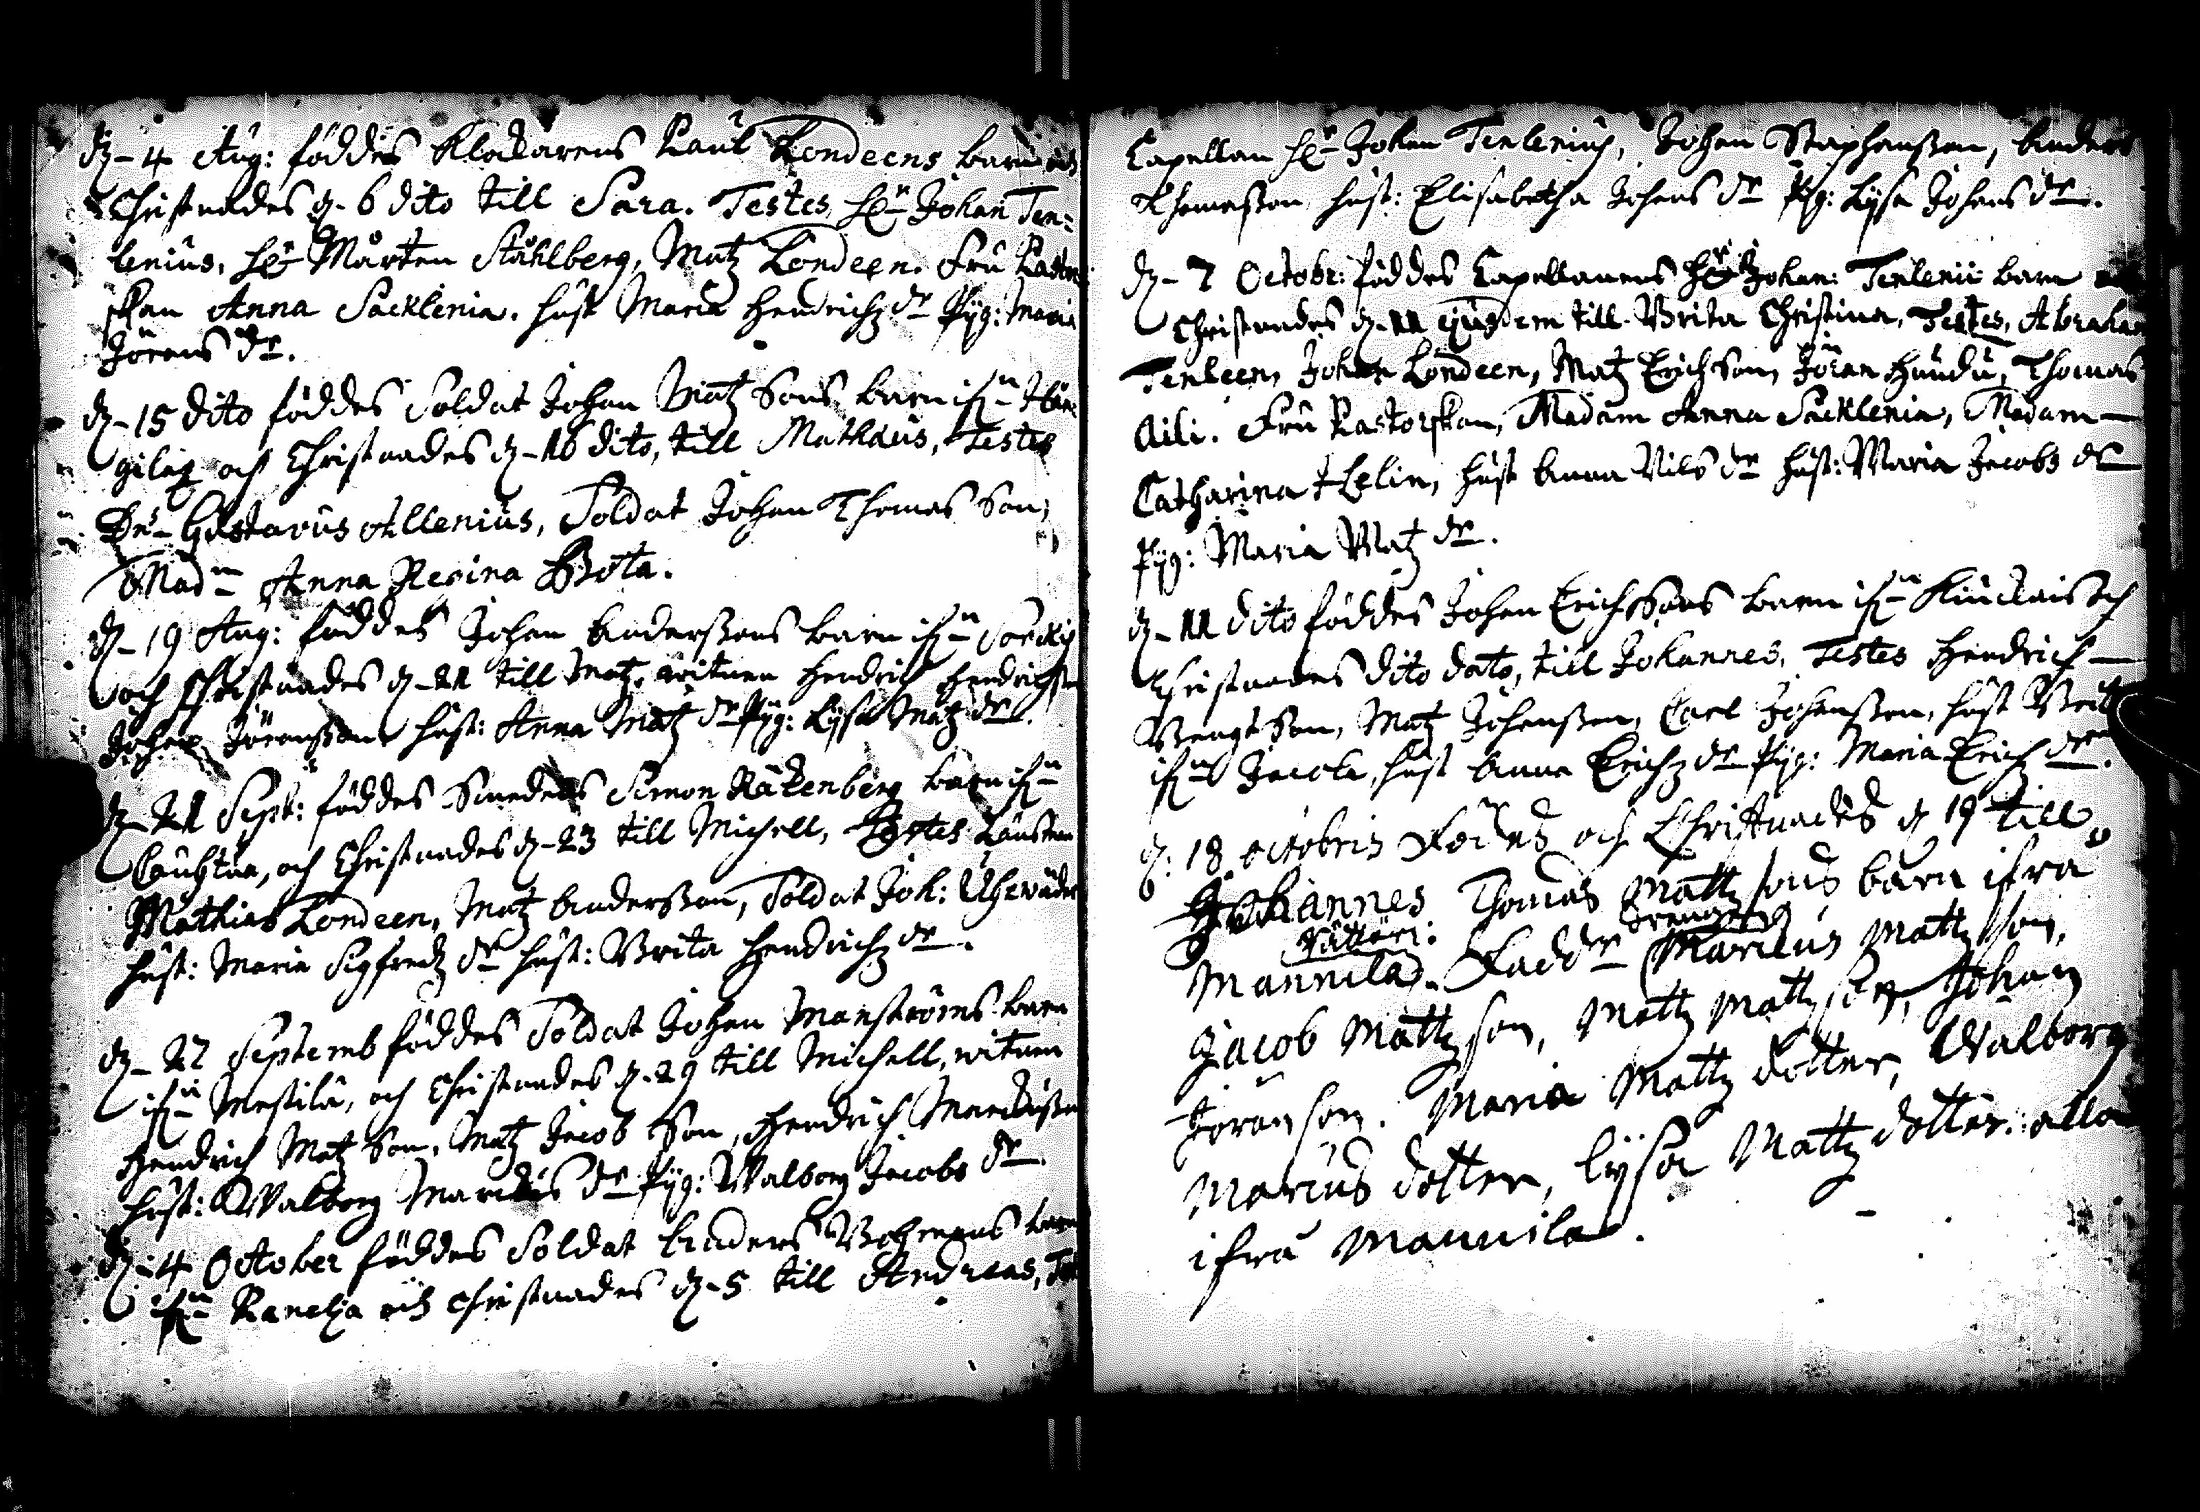 dz- 4 Aug: föddes Klockarens Paul Londeens barn och
Christnades dz- 6 dito till Sara. Testes, H:r Johan Ten-
lenius, H:r Mårten Ståhlberg, Matz Londeen. Fru Pastor-
skan Anna Sacklenia. hust Maria Hendrichz dr Pyg: Maria
Jörens dr.
dz- 15 dito föddes Soldat Johan Matz Sons barn ifrn
och Christnades dz- 16 dito, till Mathæus, Testes
Dns Gustavus Allenius, Soldat Johan Thomas Son,
Madm Anna Regina Bota.
dz- 19 Aug: föddes Johan Anderssons barn ifrn
och Christnades dz- 21 till Matz, witnen Hendrich Hendrichson
Johan Jöransson, hust: Anna Matz dr Pyg: Lysa Matz dr.
dz- 21 Sept: föddes Smedens Simon Räkenberg barn ifrn
och Christnades dz- 23 till Michell, Testes Länsman
Mathias Londeen, Matz Andersson, Soldat Joh:
hust: Maria Sigfredz dr hust: Brita Hendrichz dr.
dz- 27 Septemb föddes Soldat Johan Manströms barn
ifrn Mestilä, och Christnades dz- 29 till Michell, witnen
Hendrich Matz Son, Matz Jacob Son, Hendrich Marcusson
hust: Walborg Marcus dr Pyg: Walborg Jacobs dr.
dz- 4 October föddes Soldat Anders barn
ifrn och christnades dz- 5 till Andreas, Tes
Capellan H:r Johan Tenlenius, Johan Staphansson, Anders
Thomasson, hust: Elisabetha Johans dr Pyg: Lysa Johans dr.
dz- 7 Octobr: föddes Capellanens H:r Johan: Tenlenii barn och
Christnades dz- 11 ejusdem till Brita Christina, Testes, Abraham
Tenleen, Johan Londeen, Matz Erichson, Jöran Hundu, Thomas
Aili. Fru Pastorskan, Madam Anna Sacklenia, Madam
Catharina Helin, hust Anna Nils dr hust: Maria Jacobs dr
Pyg: Maria Matz dr.
dz- 11 dito föddes Johan Erichsons barn ifrn och
Christnades dito dato, till Johannes, Testes Hendrich
Bengt Son, Matz Johansson, Carl Johansson, hust Brita
ifrn hust Anna Erichz dr Pyg: Maria Erich dr.
dz: 18 octobris Föddes och Christnades dz 19 till
Johannes Thomas Mattz sons barn ifrå
Mannila. Faddr Marcus Mattz son,
Jacob Mattz son, Mattz Mattz son, Johan
Jöran son. Maria Mattz dotter, Walborg
Marcus dotter, Lysa Mattz dotter. alla
ifrå Mannila.